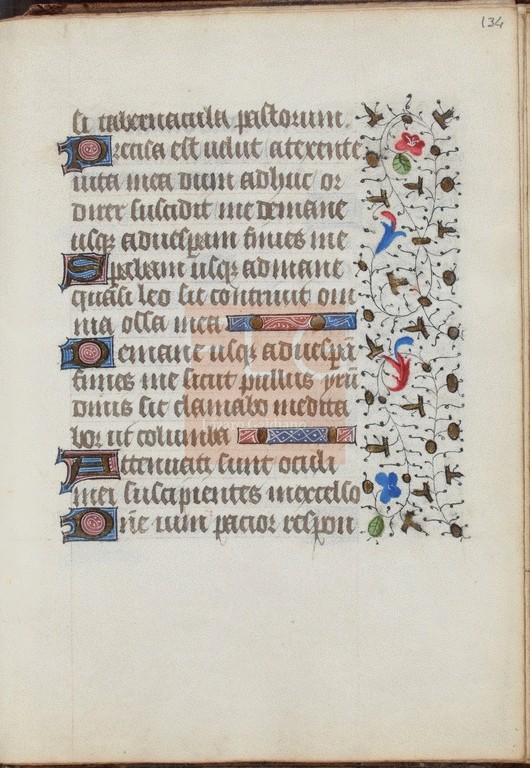 134
si tabernacula pastorum.
Precisa est uelut a texente
uita mea dum adhuc or
direr suscidit me de mane
usq; ad uesperam finies me
Sperabam usq; ad mane
quasi leo sic contriuit om
nia ossa mea
De mane usq; ad uesperā
finies me sicut pullus yrū
dinis sic clamabo medita
bor ut columba
Attenuati sunt oculi
mei suscipientes in excelso
Dñe uim pacior respon